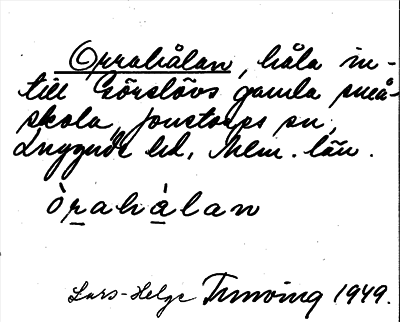 Orrahålan, håla in-
till Görslövs gamla små-
skola, Jonstorps sn,
Luggude hd, Mlm. län.
òrahàlan
Lars-Helge 1949.